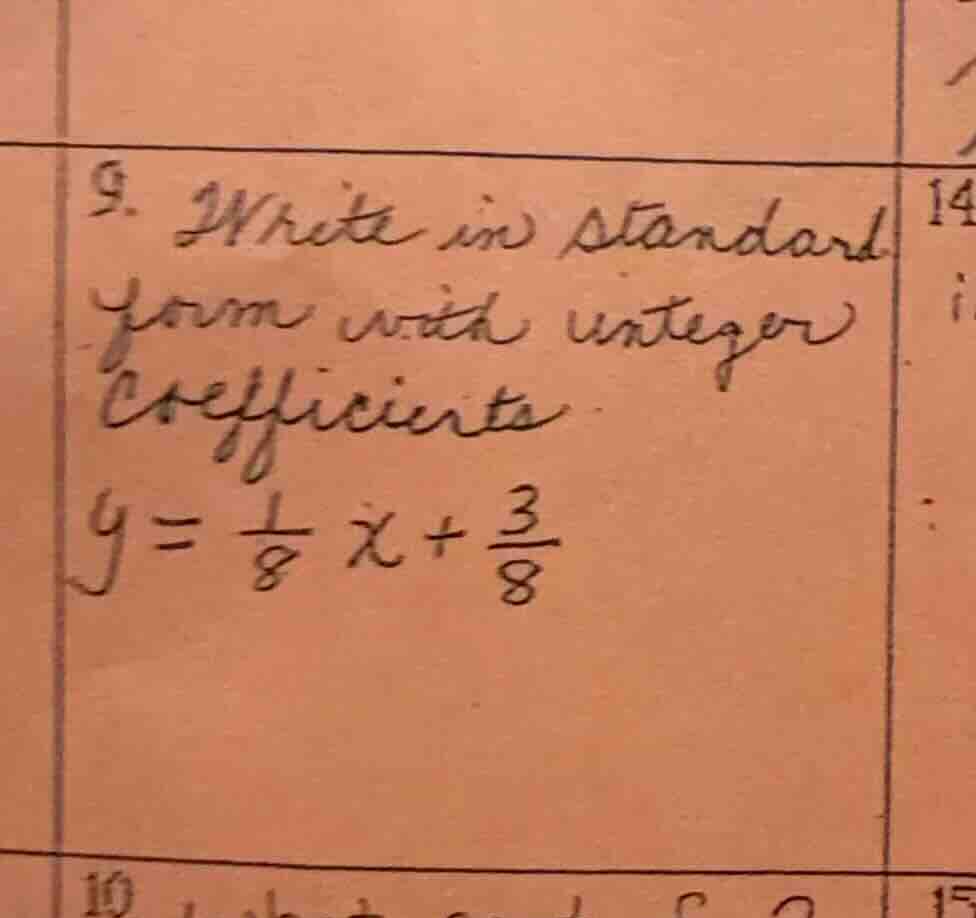 9. Write in standard
form with integer
Coefficients
y = 1/8 x + 3/8
14
10
15